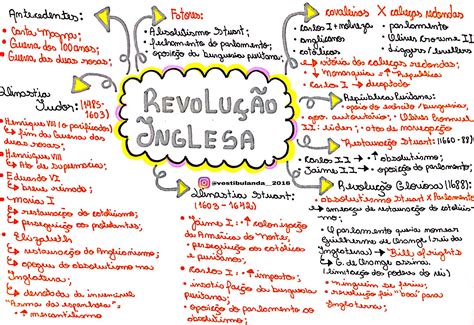 Antecedentes:
• Carta Magna;
• Guerra dos 100 anos;
• Guerra das duas rosas;
Dinastia
Tudor: (1485-
1603)
• Henrique VII (o pacificador)
↳ fim da Guerra das
duas rosas;
• Henrique VIII
↳ Ato de Supremacia;
• Eduardo VI
↳ breve reinado;
• Maria I
↳ restauração do catolicismo;
↳ perseguição aos protestantes;
• Elizabeth
↳ restauração do Anglicanismo;
↳ apogeu do absolutismo na
Inglaterra;
↳ derrota da invencível
"Arma da espanhola";
↳ ↑ mercantilismo
Fatores:
• Absolutismo Stuart;
• fechamento do parlamento;
• oposição da burguesia puritana;
REVOLUÇÃO
INGLESA
@vestibulanda_2018
Dinastia Stuart:
(1603 - 1642)
• Jaime I: colonização
das Américas do Norte;
• perseguição aos católicos
e puritanos;
• Carlos I: ↑ imposto;
• insatisfação da burguesia
puritana;
• oposição do parlamento ao
absolutismo;
cavaleiros X cabeças redondas
• Carlos I + nobreza
• anglicanos
• católicos
• parlamento
• puritanos
• Oliver Cromwell
• diggers/levellers
↳ vitória dos cabeças redondas;
↓ Monarquia ↑ República
• Carlos I: decapitado
República Puritana:
• apoio do exército/burguesia;
• gov. autoritário: Oliver Cromwell
II: lider; ato de navegação
Restauração Stuart: (1660-88)
• Carlos II → ↑ absolutismo;
• Jaime II → oposição do parlamento;
Revolução Gloriosa (1688):
• absolutismo Stuart X Parlamento
↳ ameaça de restauração do catolicismo;
• O parlamento queria nomear
Guilherme de Orange (rei da
Inglaterra) → "Bill of rights"
↳ G. de Orange assina.
(limitação dos poderes do rei)
• ninguém se feriu;
• revolução foi "boa" para
Inglaterra;